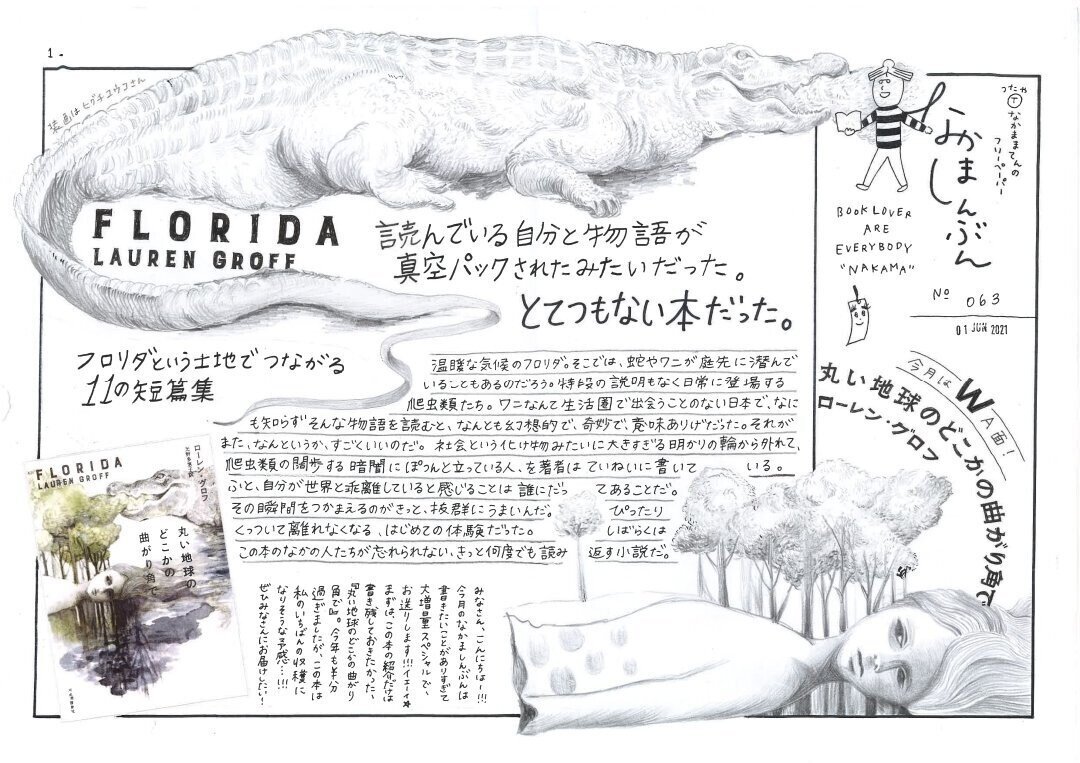 1.
装画はヒグチユウコさん
FLORIDA
LAUREN GROFF
読んでいる自分と物語が
真空パックされたみたいだった。
とてつもない本だった。
フロリダという土地でつながる
11の短篇集
温暖な気候のフロリダ。そこでは、蛇やワニが庭先に潜んで
いることもあるのだろう。特段の説明もなく日常に登場する
爬虫類たち。ワニなんて生活圏で出会うことのない日本で、なに
も知らずそんな物語を読むと、なんとも幻想的で、奇妙で、意味ありげだった。それが
また、なんというか、すごくいいのだ。社会という化け物みたいに大きすぎる明かりの輪から外れて、
爬虫類の闊歩する暗闇にぽつんと立っている人、を著者はていねいに書いている。
ふと、自分が世界と乖離していると感じることは誰にだってあることだ。
その瞬間をつかまえるのがきっと、抜群にうまいんだ。ぴったり
くっついて離れなくなる、はじめての体験だった。しばらくは
この本のなかの人たちが忘れられない、きっと何度でも読み返す小説だ。
みなさん、こんにちはー!!!
今月のなかましんぶんは
書きたいことがありすぎて
大増量スペシャルで、
お送りします!!!イエーイ★
まずは、この本の紹介だけは
書き残しておきたかった、
『丸い地球のどこかの曲がり
角で』。今年も半分
過ぎましたが、この本は
私のいちばんの収穫に
なりそうな予感…!!!
ぜひみなさんにお届けしたい!
FLORIDA
LAUREN GROFF
ローレン・グロフ
丸い地球の
どこかの
曲がり角で
河出書房新社
つたや
T
なかままてんの
フリーペーパー
なかま
しんぶん
BOOK LOVER
ARE
EVERYBODY
"NAKAMA"
No 063
01 JUN 2021
今月はW A面!
丸い地球のどこかの曲がり角で
ローレン・グロフ